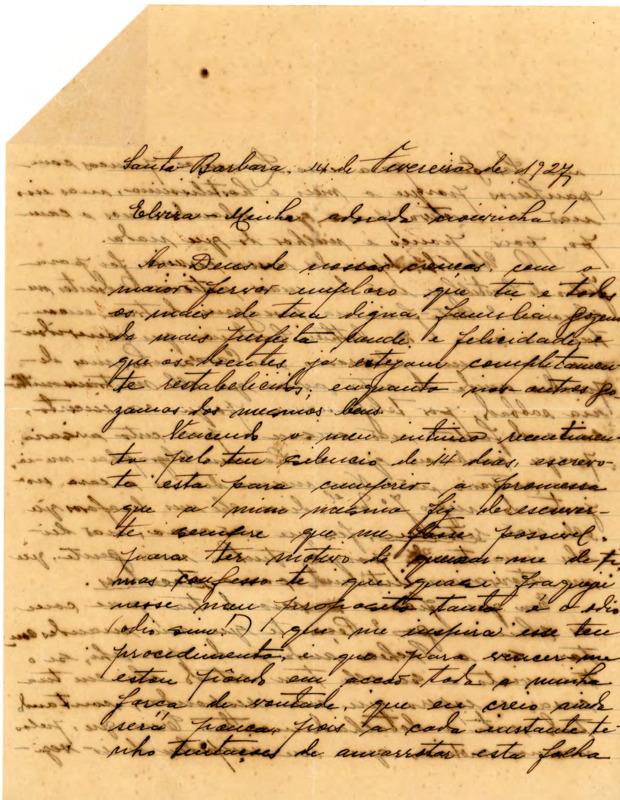 Santa Barbara, 14 de Fevereiro de 1927
Elvira - Minha adorada noivinha
Ao Deus de nossas crenças, com o
maior fervor imploro que tu e todos
os mais de tua digna familia gozem
da mais perfeita saude e felicidade, e
que os doentes já estejam completamen-
te restabelicidos; enquanto nos outros go-
zamos dos mesmos bens.
Vencendo o meu intimo resentimen-
to pelo teu silencio de 14 dias, escrevo-
te esta para cumprir a promessa
que a mim mesmo fiz de escrever-
te sempre que me fosse possivel.
para ter motivo de queixar-me de ti,
mas confesso-te que quasi fraquejei
nesse meu proposito tanto é o odio
(odio sim!) que me inspira esse teu
procedimento, e que para vencer-me
estou pondo em acção toda a minha
força de vontade, que eu creio ainda
será pouca, pois a cada instante te-
nho tentações de amarrotar esta folha